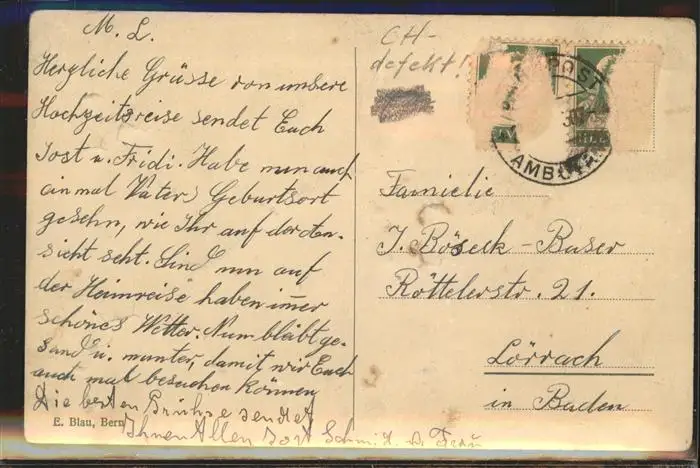 M. L.
Herzliche Grüsse von unsere
Hochzeitsreise sendet Euch
Jost u. Fridi. Habe nun auch
einmal Vaters Geburtsort
gesehn, wie Ihr auf der An-
sicht seht. Sind nun auf
der Heimreise haben imer
schönes Wetter. Nun bleibt ge-
sund u. munter, damit wir Euch
auch mal besuchen können
Die besten Brühse sendet
Ihnen Allen Jost Schmid. u. Frau
E. Blau, Bern
CH-
defekt!
POST
AMBULANT
Familie
J. Böseck-Buser
Röttelerstr. 21.
Lörrach
in Baden